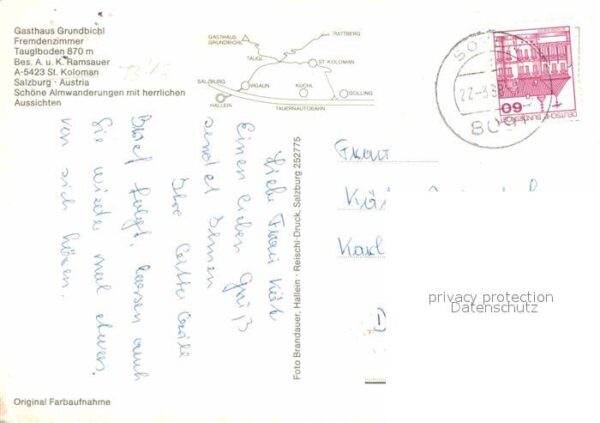 Gasthaus Grundbichl
Fremdenzimmer
Tauglboden 870 m
Bes. A. u. K. Ramsauer
A-5423 St. Koloman
Salzburg · Austria
Schöne Almwanderungen mit herrlichen
Aussichten
GASTHAUS
GRUNDBICHL
TRATTBERG
TAUGL
ST. KOLOMAN
SALZBURG
VIGAUN
KUCHL
GOLLING
HALLEIN
TAUERNAUTOBAHN
60
DEUTSCHE BUNDESPOST
Liebe Frau Käte
Einen lieben Gruß
sendet Ihnen
Ihre
Brief folgt, lassen auch
Sie wieder mal etwas
von sich hören.
Foto Brandauer, Hallein · Reischl-Druck, Salzburg 252775
Frau
Karl
privacy protection
Datenschutz
Original Farbaufnahme